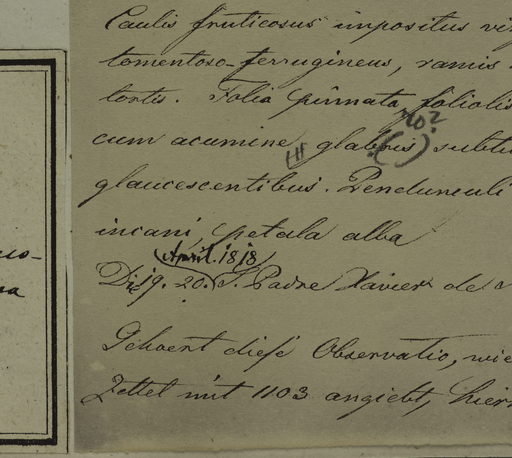 Caulis fruticosus impositus
tomentoso-ferrugineus, ramis
tortis. Folia pinnata foliolis
no?
cum acumine glabris ?( ) subtu
glaucescentibus. Pendunculi
incani petala alba
(April. 1818)
Die 19. 20. S. Padre Xavier de
Gehoert diese Observatio, wie
Zettel mit 1103 angiebt, hier